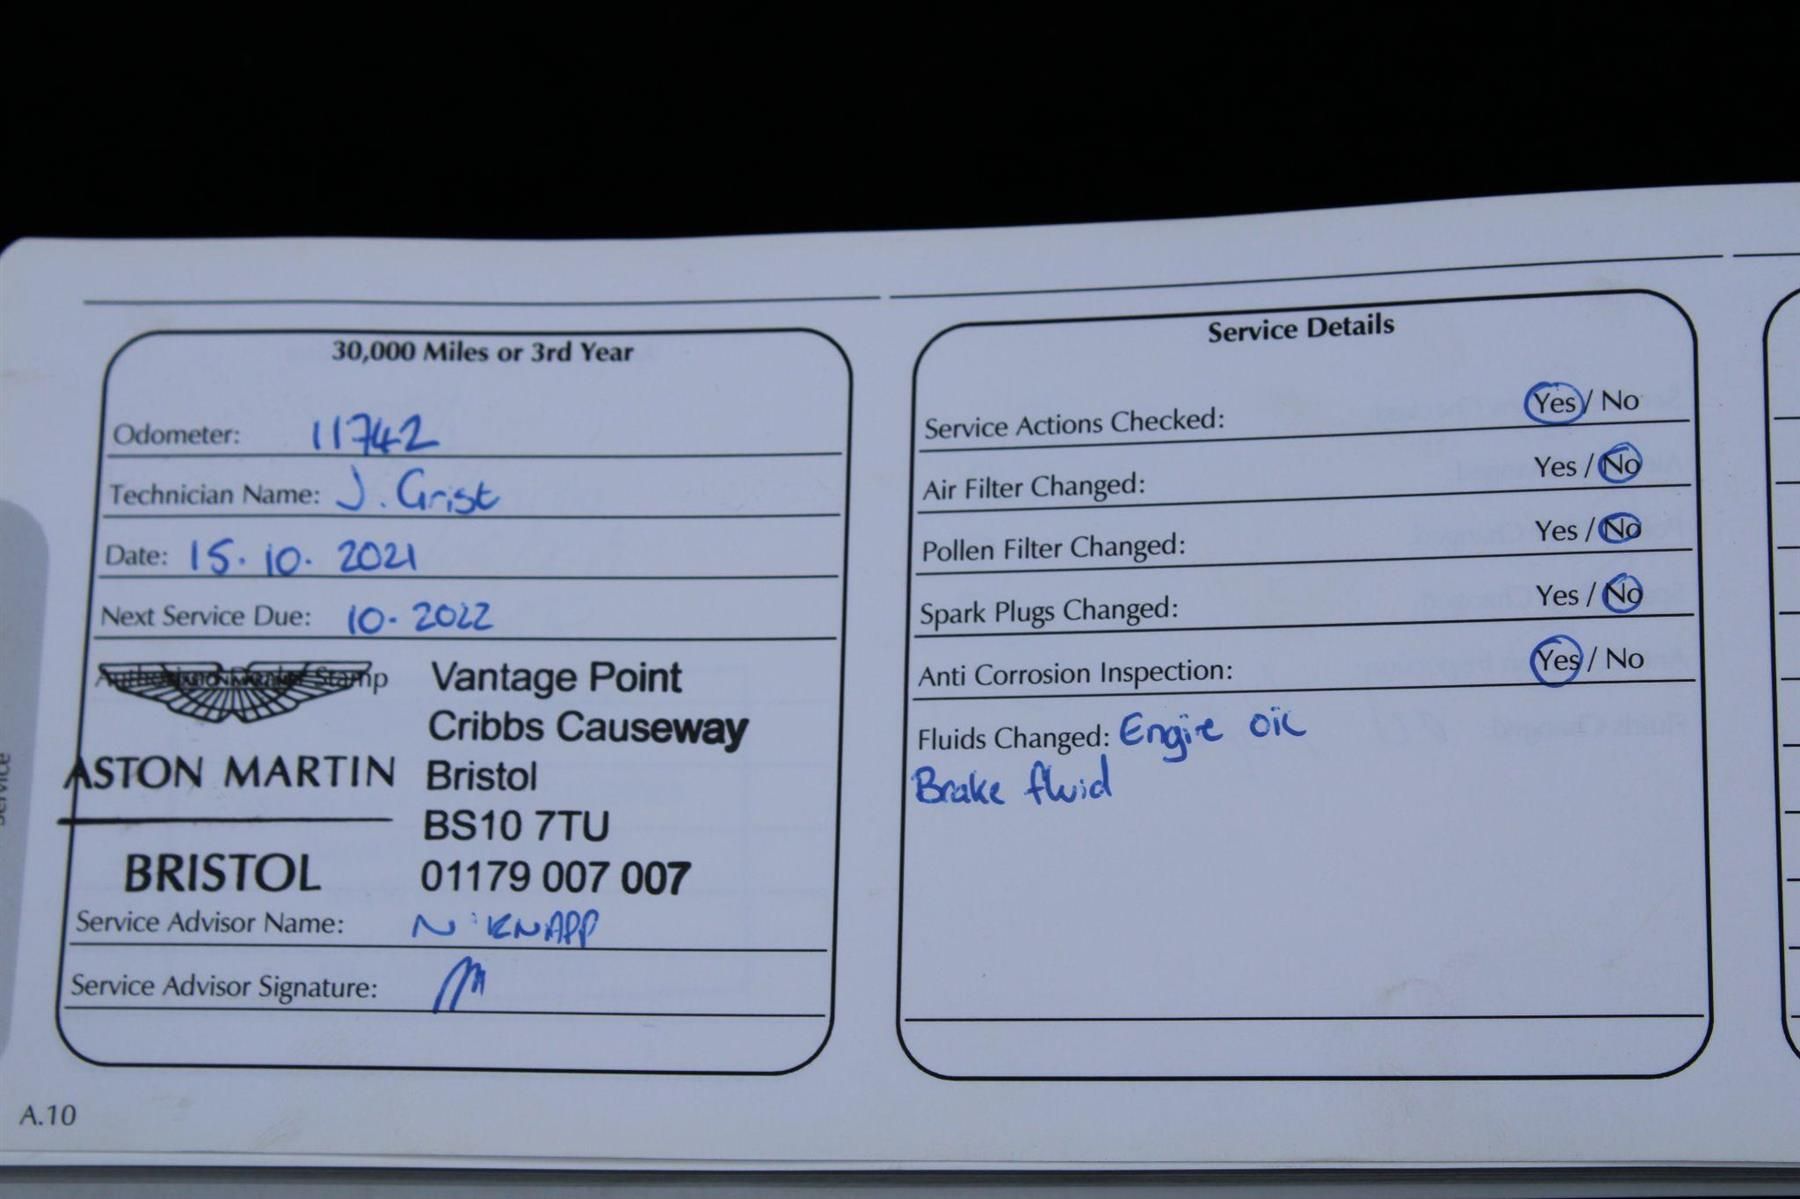 30,000 Miles or 3rd Year
Odometer: 11742
Technician Name: J. Grist
Date: 15.10.2021
Next Service Due: 10.2022
Authorised Dealer Stamp
ASTON MARTIN
BRISTOL
Vantage Point
Cribbs Causeway
Bristol
BS10 7TU
01179 007 007
Service Advisor Name: N.KNAPP
Service Advisor Signature:
A.10
Service Details
Service Actions Checked: Yes / No
Air Filter Changed: Yes / No
Pollen Filter Changed: Yes / No
Spark Plugs Changed: Yes / No
Anti Corrosion Inspection: Yes / No
Fluids Changed: Engine oil
Brake fluid